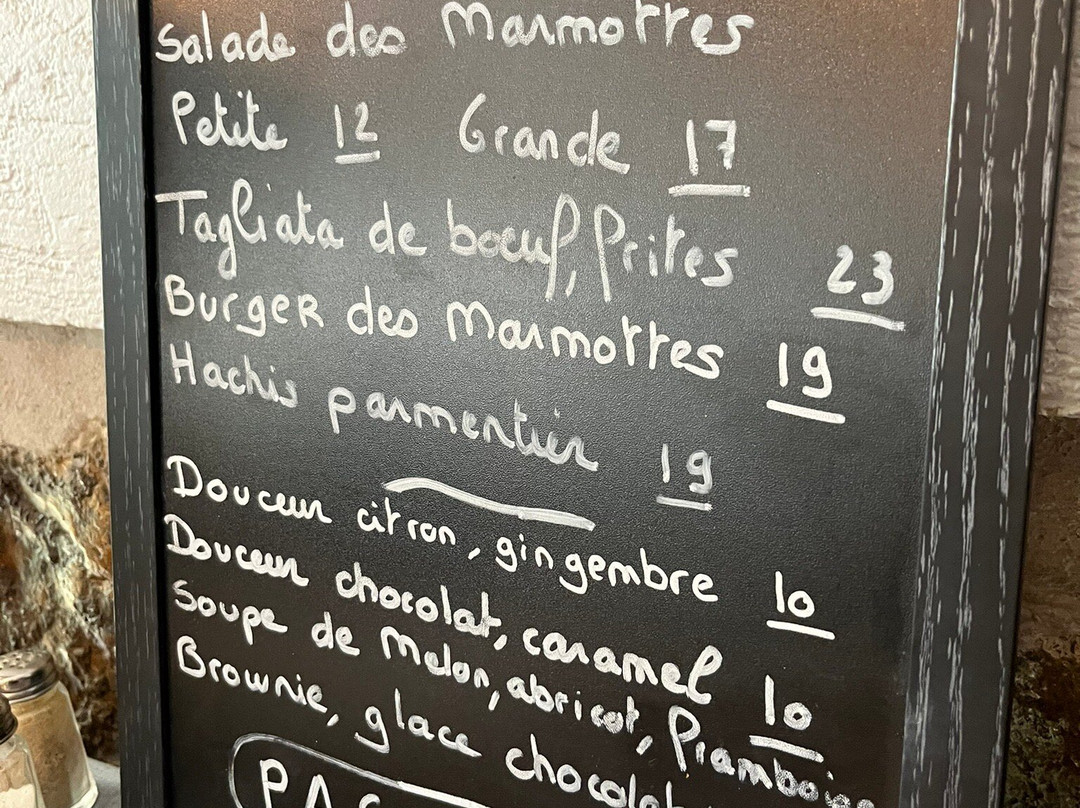 Salade des Marmottes
Petite 12 Grande 17
Tagliata de boeuf, frites 23
Burger des Marmottes 19
Hachis parmentier 19
Douceur citron, gingembre 10
Douceur chocolat, caramel 10
Soupe de Melon, abricot, framboise
Brownie, glace chocolat